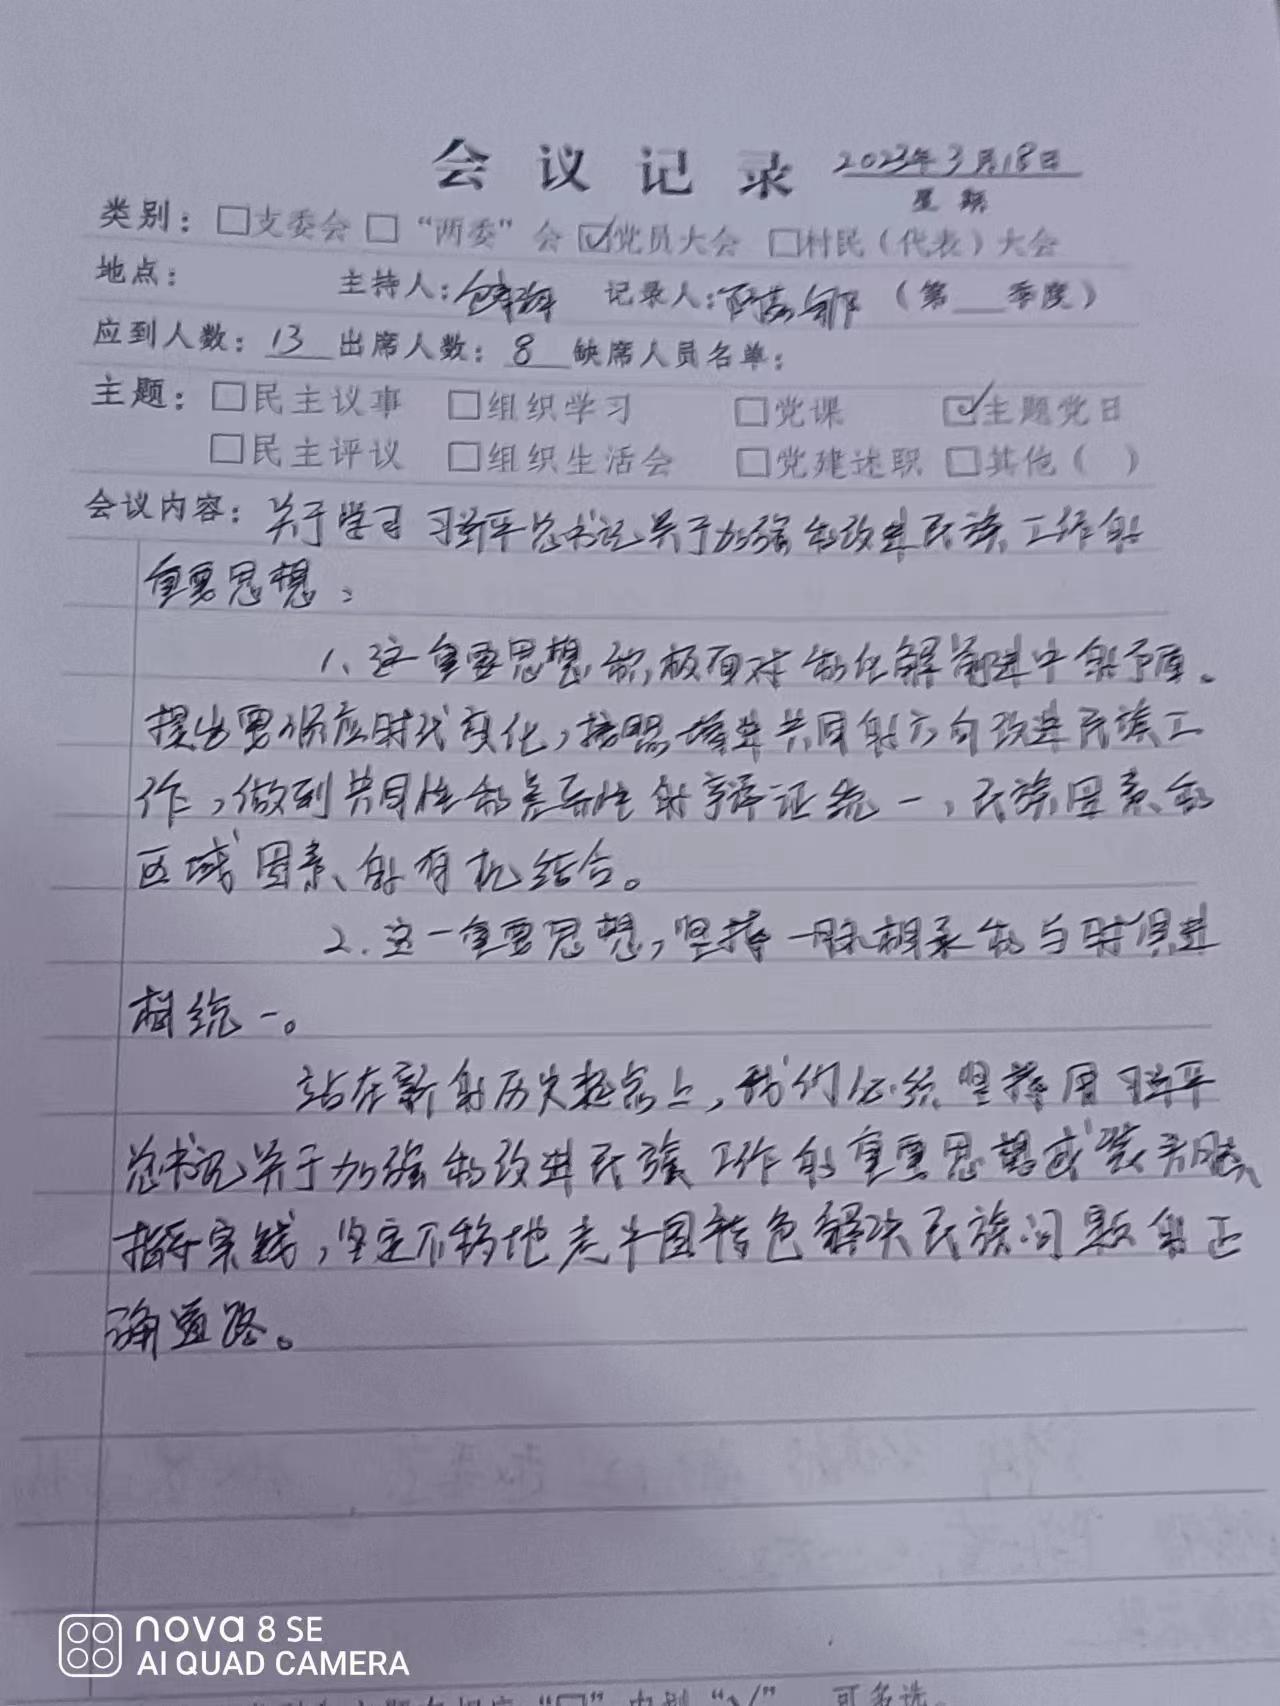 会议记录 2023年3月18日
星期
类别：□支委会 □“两委”会 ☑党员大会 □村民（代表）大会
地点： 主持人： 记录人： （第__季度）
应到人数：13 出席人数：8 缺席人员名单：
主题：□民主议事 □组织学习 □党课 ☑主题党日
□民主评议 □组织生活会 □党建述职 □其他（ ）
会议内容：关于学习习近平总书记关于加强和改进民族工作的
重要思想：
1、这一重要思想，积极面对和化解前进中的矛盾。
提出要顺应时代变化，按照增进共同的方向改进民族工
作，做到共同性和差异性的辩证统一，民族因素和
区域因素的有机结合。
2.这一重要思想，坚持一脉相承和与时俱进
相统一。
站在新的历史起点上，我们必须坚持用习近平
总书记关于加强和改进民族工作的重要思想武装头脑、
指导实践，坚定不移地走中国特色解决民族问题的正
确道路。
nova 8 SE
AI QUAD CAMERA
“□”内划“√” 可多选。